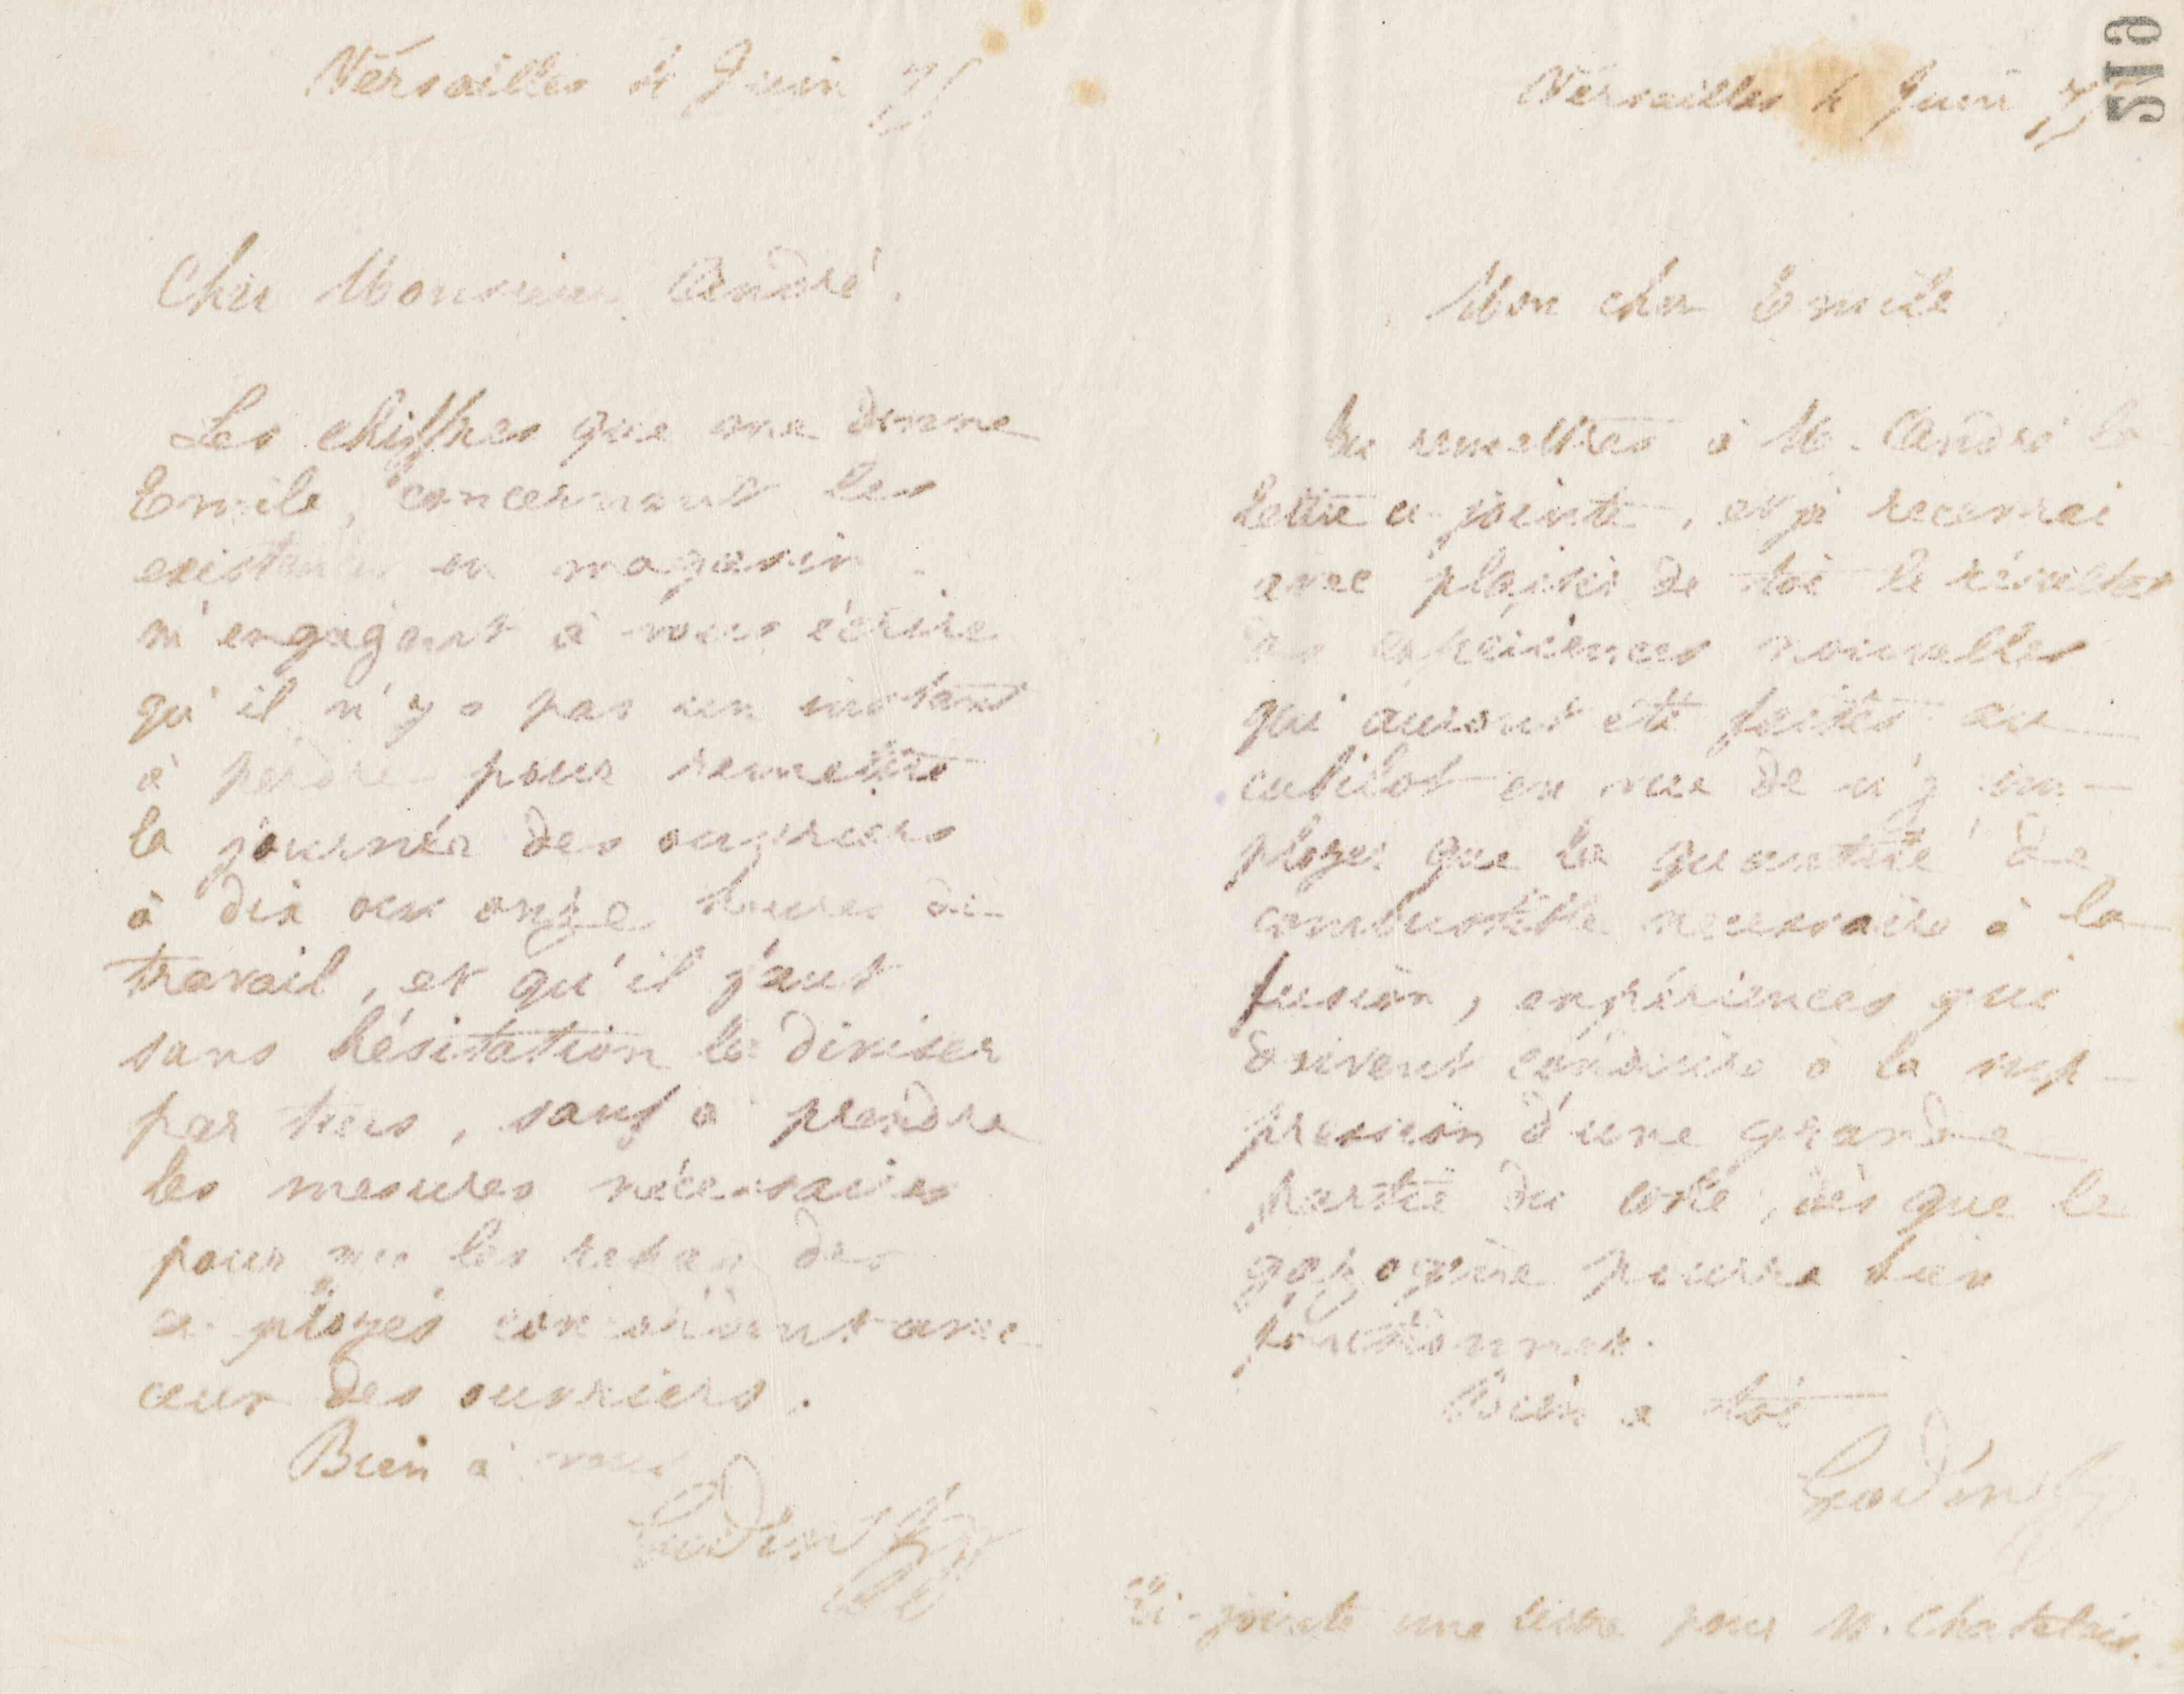 Versailles 4 Juin 75
Cher Monsieur André.
Les chiffres que me donne
Emile, concernant les
existences en magasin
m'engagent à vous écrire
qu'il n'y a pas un instant
à perdre pour remettre
la journée des ouvriers
à dix ou onze heures de
travail, et qu'il faut
sans hésitation la diviser
par tiers, sauf à prendre
les mesures nécessaires
pour que les repas des
employés coïncident avec
ceux des ouvriers.
Bien à vous
Godin
519
Versailles 4 Juin 75
Mon cher Emile
Tu remettras à M. André la
lettre ci-jointe, et je recevrai
avec plaisir de toi le résultat
des expériences nouvelles
qui auront été faites au
cubilot en vue de n'y em-
ployer que la quantité de
combustible necessaire à la
fusion, expériences qui
doivent conduire à la sup-
pression d'une grande
partie du coke, dès que le
gazogène pourra bien
fonctionner.
Bien a toi
Godin
Ci-jointe une lettre pour M. Chatelain.